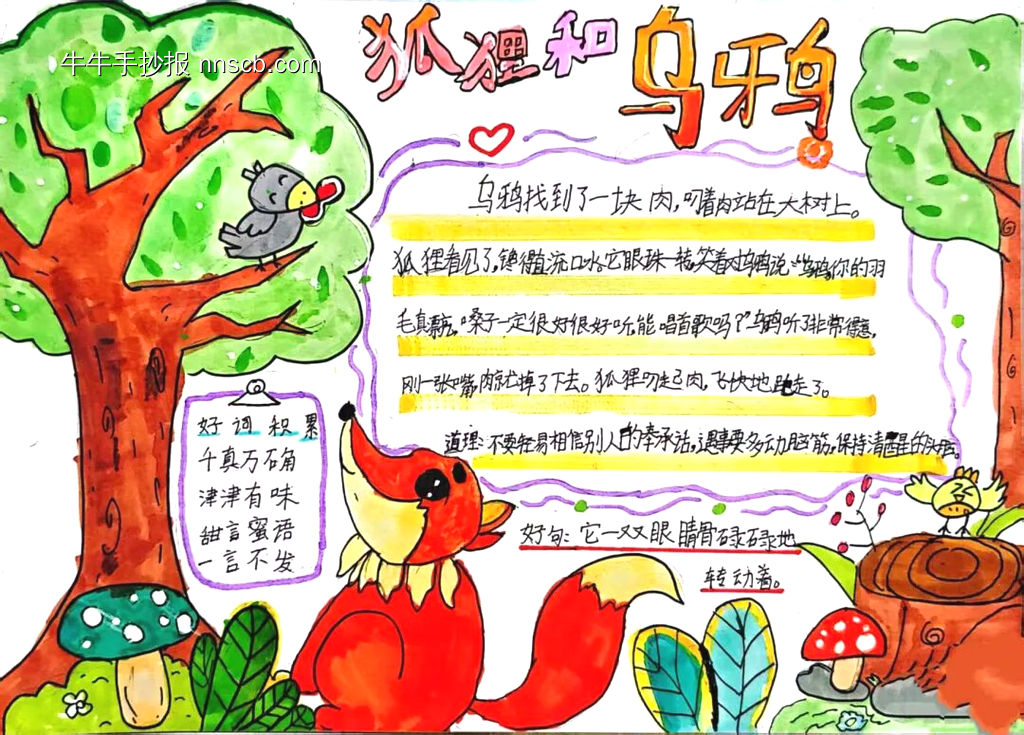 牛牛手抄报 nnscb.com
狐狸和乌鸦
乌鸦找到了一块肉,叼着肉站在大树上。
狐狸看见了,馋得直流口水。它眼珠一转,笑着对乌鸦说:“乌鸦,你的羽
毛真漂亮,嗓子一定很好很好听,能唱首歌吗?”乌鸦听了非常得意,
刚一张嘴,肉就掉了下去。狐狸叼起肉,飞快地跑走了。
道理:不要轻易相信别人的奉承话,遇事要多动脑筋,保持清醒的头脑。
好词积累
千真万确
津津有味
甜言蜜语
一言不发
好句:它一双眼睛骨碌碌地
转动着。